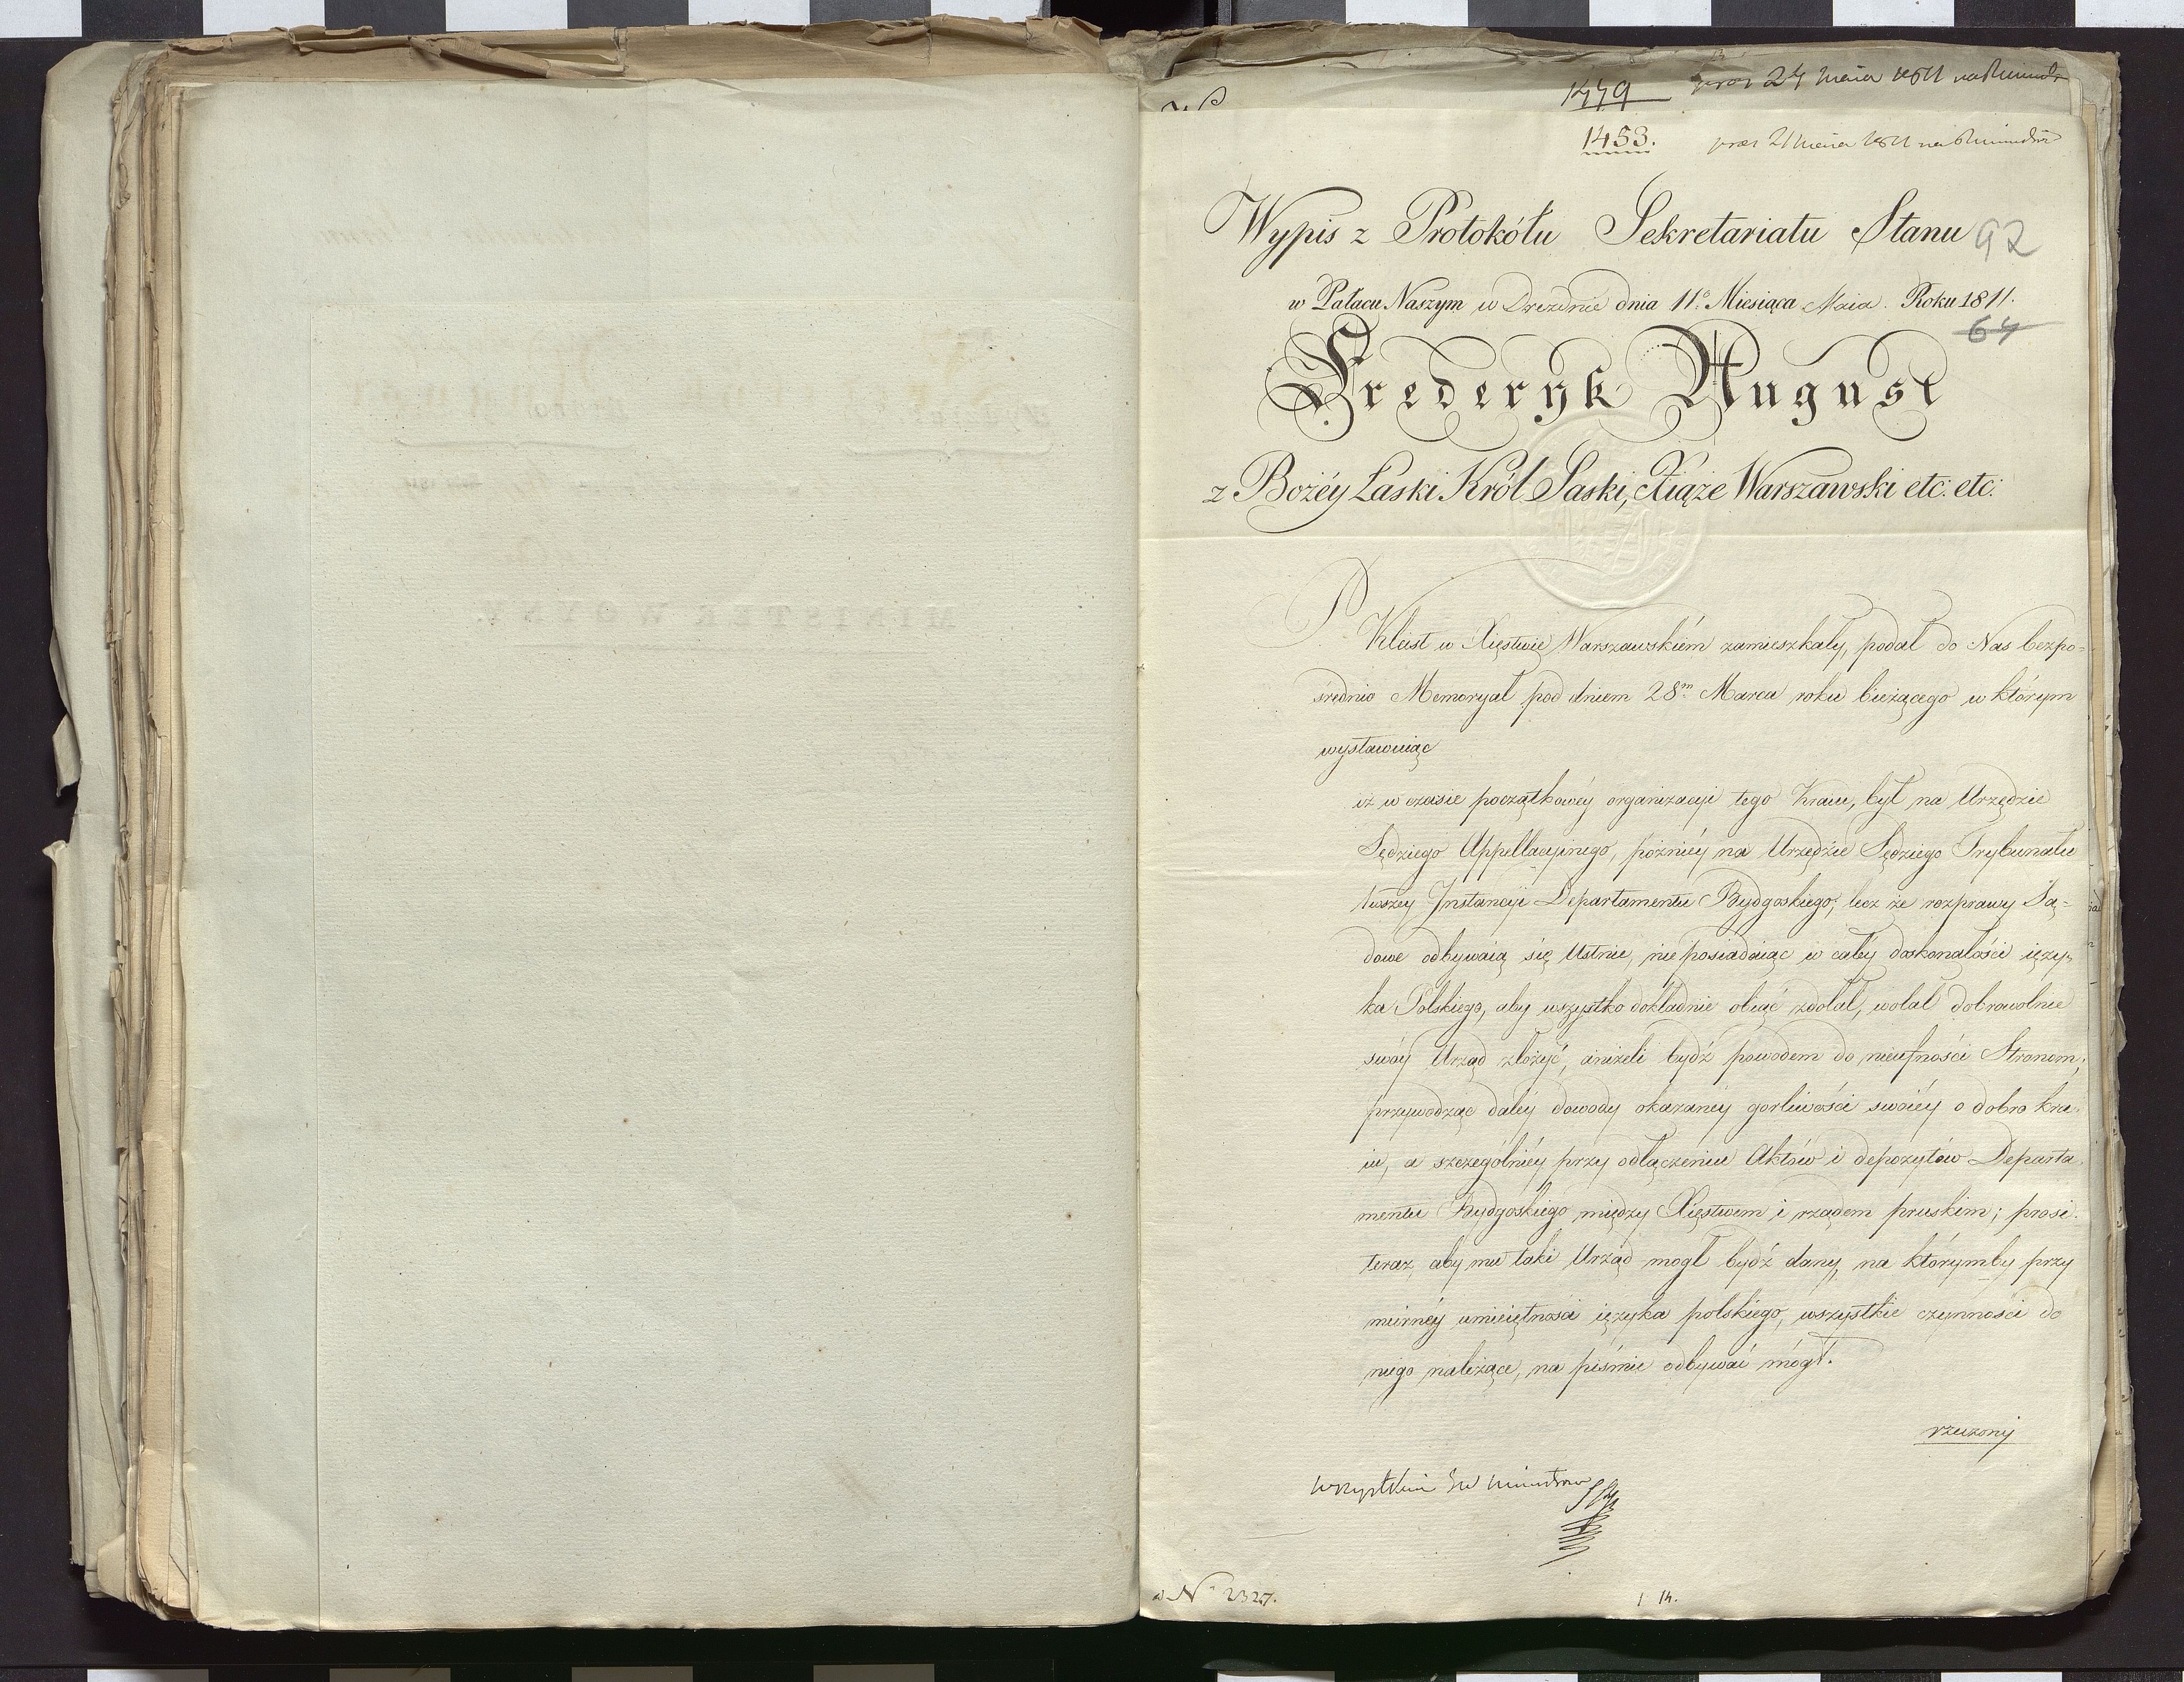 1779
praes 27 maia 1811 na
1453.
praes 21 maia 1811 na
Wypis z Protokółu Sekretariatu Stanu
92
w Pałacu Naszym w Dreznie dnia 11º Miesiąca Maia. Roku 1811.
64
Fryderyk August
z Bożéy Łaski Król Saski, Xiąże Warszawski etc: etc:
P Kleist w Xięstwie Warszawskiém zamieszkały, podał do Nas bezpo=
średnio Memoryał pod dniem 28m Marca roku bieżącego w którym
wystawuiąc
iż w czasie początkowéy organizacyi tego Kraiu, był na Urzędzie
Sędziego Appellacyinego, poźniéy na Urzędzie Sędziego Trybunału
1wszey Instancyi Departamentu Bydgoskiego, lecz że rozprawy Są=
dowe odbywaią się Ustnie, nie posiadaiąc w całéy doskonałości ięzy=
ka Polskiego, aby wszystko dokładnie obiąć zdołał, wolał dobrowolnie
swóy Urząd złożyć, aniżeli bydź powodem do nieufności Stronom;
przywodząc daléy dowody okazanéy gorliwości swoiéy o dobro kra=
iu, a szczególniéy przy odłączeniu Aktów i depozytów Departa=
mentu Bydgoskiego między Xięstwem i rządem pruskim; prosi
teraz, aby mu taki Urząd mógł bydź dany, na którymby przy
miernéy umieiętności ięzyka polskiego, wszystkie czynności do
niego należące, na piśmie odbywać mógł.
rzeczony
wszystkim JW Ministrom
N 2327.
1 14.
MINISTER WOYNY.